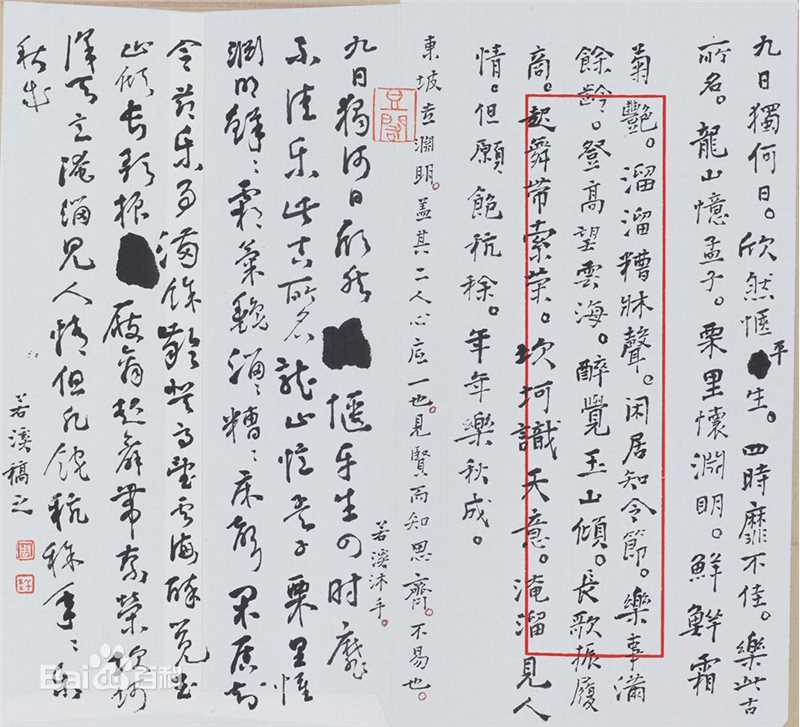 九日獨何日。欣然惬平生。四時靡不佳。樂此古
所名。龍山憶孟子。栗里懷淵明。鮮鮮霜
菊艷。溜溜糟牀聲。闲居知令節。樂事滿
餘齡。登高望雲海。醉覺玉山傾。長歌振履
商。起舞帶索荣。坎坷識天意。淹溜見人
情。但願飽秔稌。年年樂秋成。
東坡淵明。盖其二人心底一也。見賢而知思齊。不易也。
若溪沐手。
豆閣
九日獨何日欣然惬平生四时靡
不佳乐此古所名龍山憶孟子栗里懷
淵明鮮〻霜菊艷溜〻糟〻床聲闲居知
令節乐事满餘齡登高望雲海醉覺玉
山傾長歌振履商起舞帶索榮坎坷
識天意淹溜見人情但願飽秔稌年〻乐
秋成
若溪稿之
Baidu百科